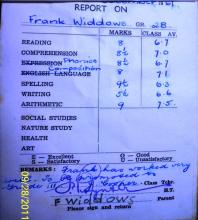 REPORT ON
Frank Widdows GR 2B
MARKS CLASS AV.
READING 8 6.7
COMPREHENSION 8½ 7.0
EXPRESSION Phonics 8½ 7.7
Composition
ENGLISH LANGUAGE 8 7.1
SPELLING 9½ 6.3
WRITING 5½ 6.6
ARITHMETIC 9 7.5
SOCIAL STUDIES
NATURE STUDY
HEALTH
ART
E — Excellent G — Good
S — Satisfactory U — Unsatisfactory
REMARKS: Frank has worked very
well. To be promised in
Grade III Class Tchr.
H.T.
F Widdows Parent
Please sign and return
09/28/2011